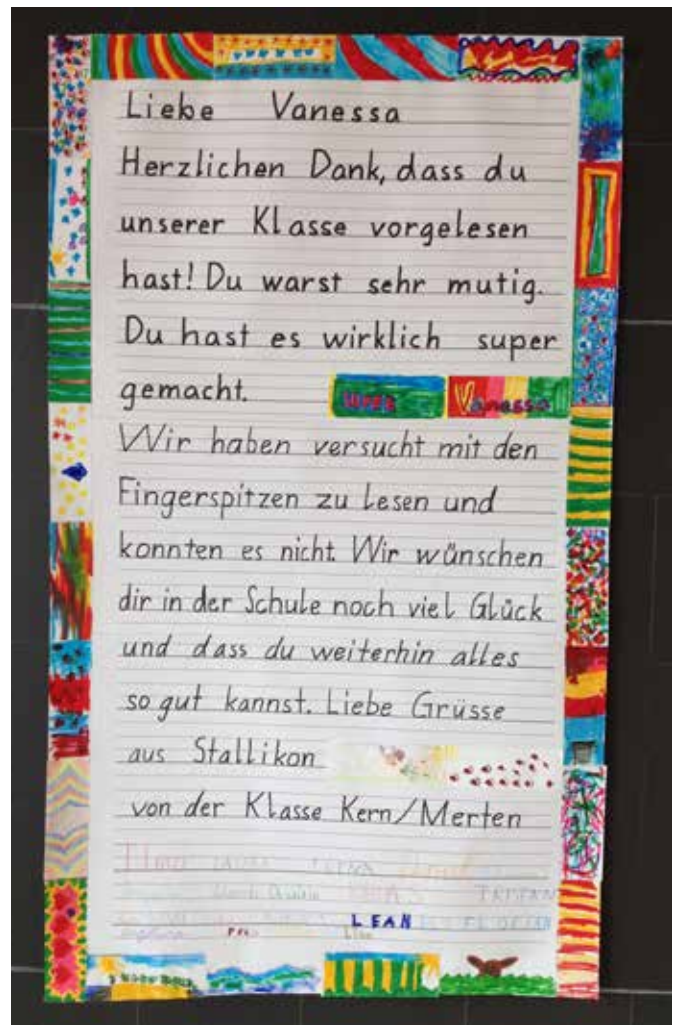 Liebe Vanessa
Herzlichen Dank, dass du
unserer Klasse vorgelesen
hast! Du warst sehr mutig.
Du hast es wirklich super
gemacht.
Vanessa
Wir haben versucht mit den
Fingerspitzen zu lesen und
konnten es nicht. Wir wünschen
dir in der Schule noch viel Glück
und dass du weiterhin alles
so gut kannst. Liebe Grüsse
aus Stallikon
von der Klasse Kern/Merten
LAURA
TRISTAN
LEAN FLORIAN